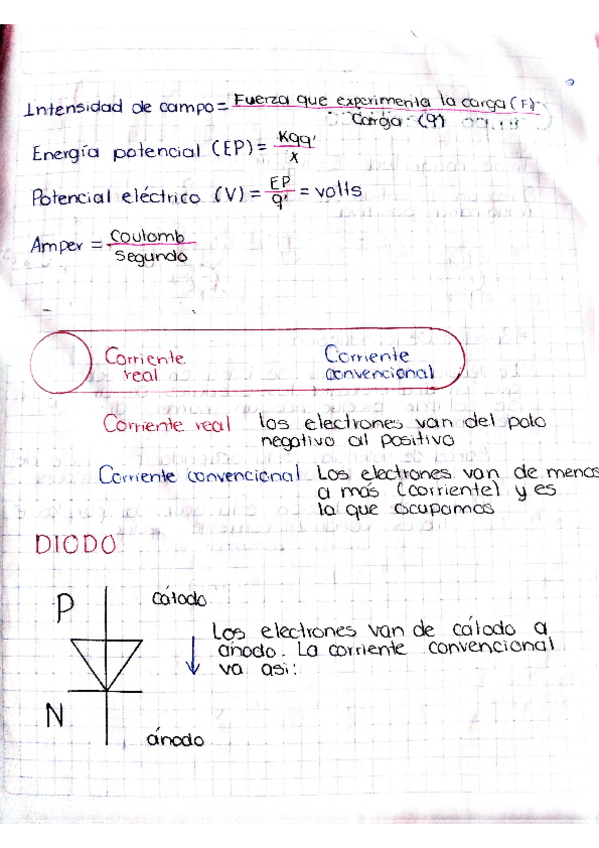 Intensidad de campo= Fuerza que experimenta la carga (F)
Carga (q)
Energía potencial (EP)= Kqq'
x
Potencial eléctrico (V)= EP = volts
q'
Amper = Coulomb
segundo
Corriente real
Corriente convencional
Corriente real los electrones van del polo
negativo al positivo
Corriente convencional Los electrones van de menos
a más (corriente) y es
la que ocupamos
DIODO
P
cátodo
Los electrones van de cátodo a
ánodo. La corriente convencional
va asi:
N
ánodo